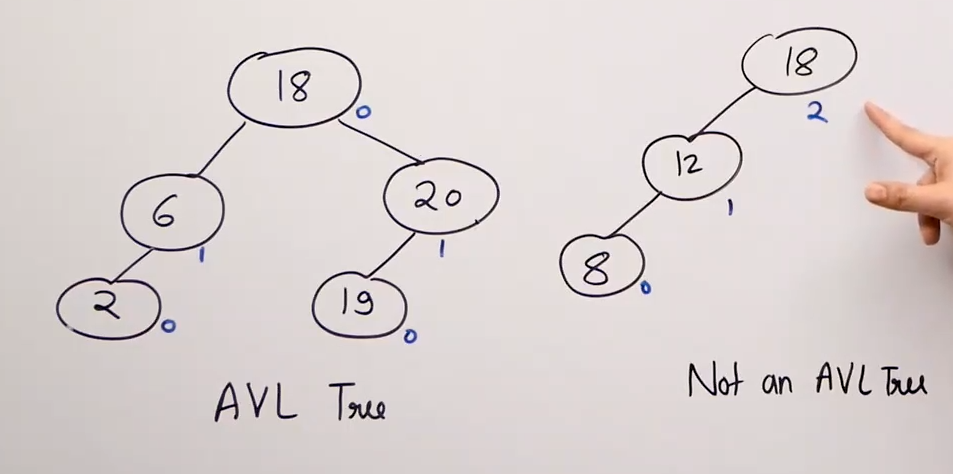 18
0
6
1
20
1
2
0
19
0
AVL Tree
18
2
12
1
8
0
Not an AVL Tree